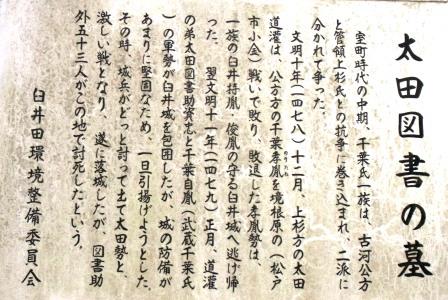 太田図書の墓
室町時代の中期、千葉氏一族は、古河公方
と管領上杉氏との抗争に巻き込まれ、二派に
分かれて争った。
文明十年(一四七八)十二月、上杉方の太田
道灌は、公方方の千葉孝胤を境根原の(松戸
市小金)戦いで敗り、敗退した孝胤勢は、
一族の臼井持胤・俊胤の守る臼井城へ逃げ帰
った。 翌文明十一年(一四七九)正月、道灌
の弟太田図書助資忠と千葉自胤(武蔵千葉氏
)の軍勢が臼井城を包囲したが、城の防備が
あまりに堅固なため、一旦引揚げようとした。
その時、城兵がどっと討って出て太田勢と、
激しい戦となり、遂に落城したが、図書助
外五十三人がこの地で討死したという。
臼井田環境整備委員会